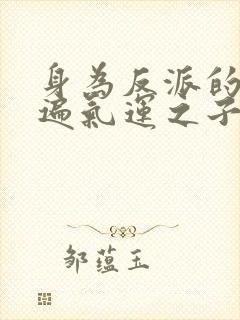 身為反派的
遍氣運之子
邹蕴玉